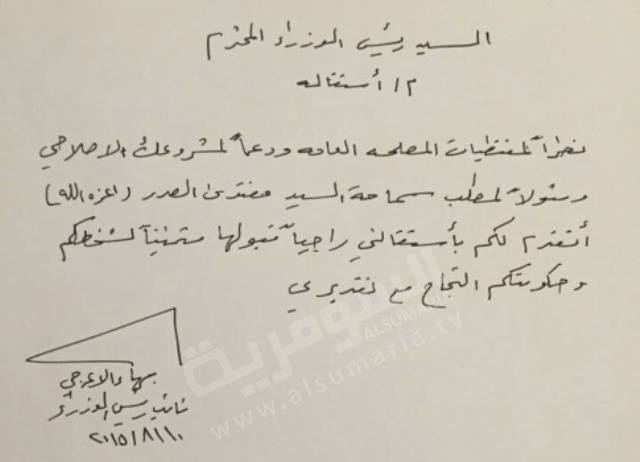 السيد رئيس الوزراء المحترم
م/ أستقاله
نظراً لمقتظيات المصلحه العامه ودعماً لمشروعك الاصلاحي
ونزولاً لمطلب سماحة السيد مقتدى الصدر (اعزه الله)
أتقدم لكم بأستقالتي راجياً قبولها متمنياً لشخصكم
وحكومتكم النجاح مع تقديري
بهاء الاعرجي
نائب رئيس الوزراء
٢٠١٥/٨/١٠
السومرية
ALSUMARIA
www.alsumaria.tv